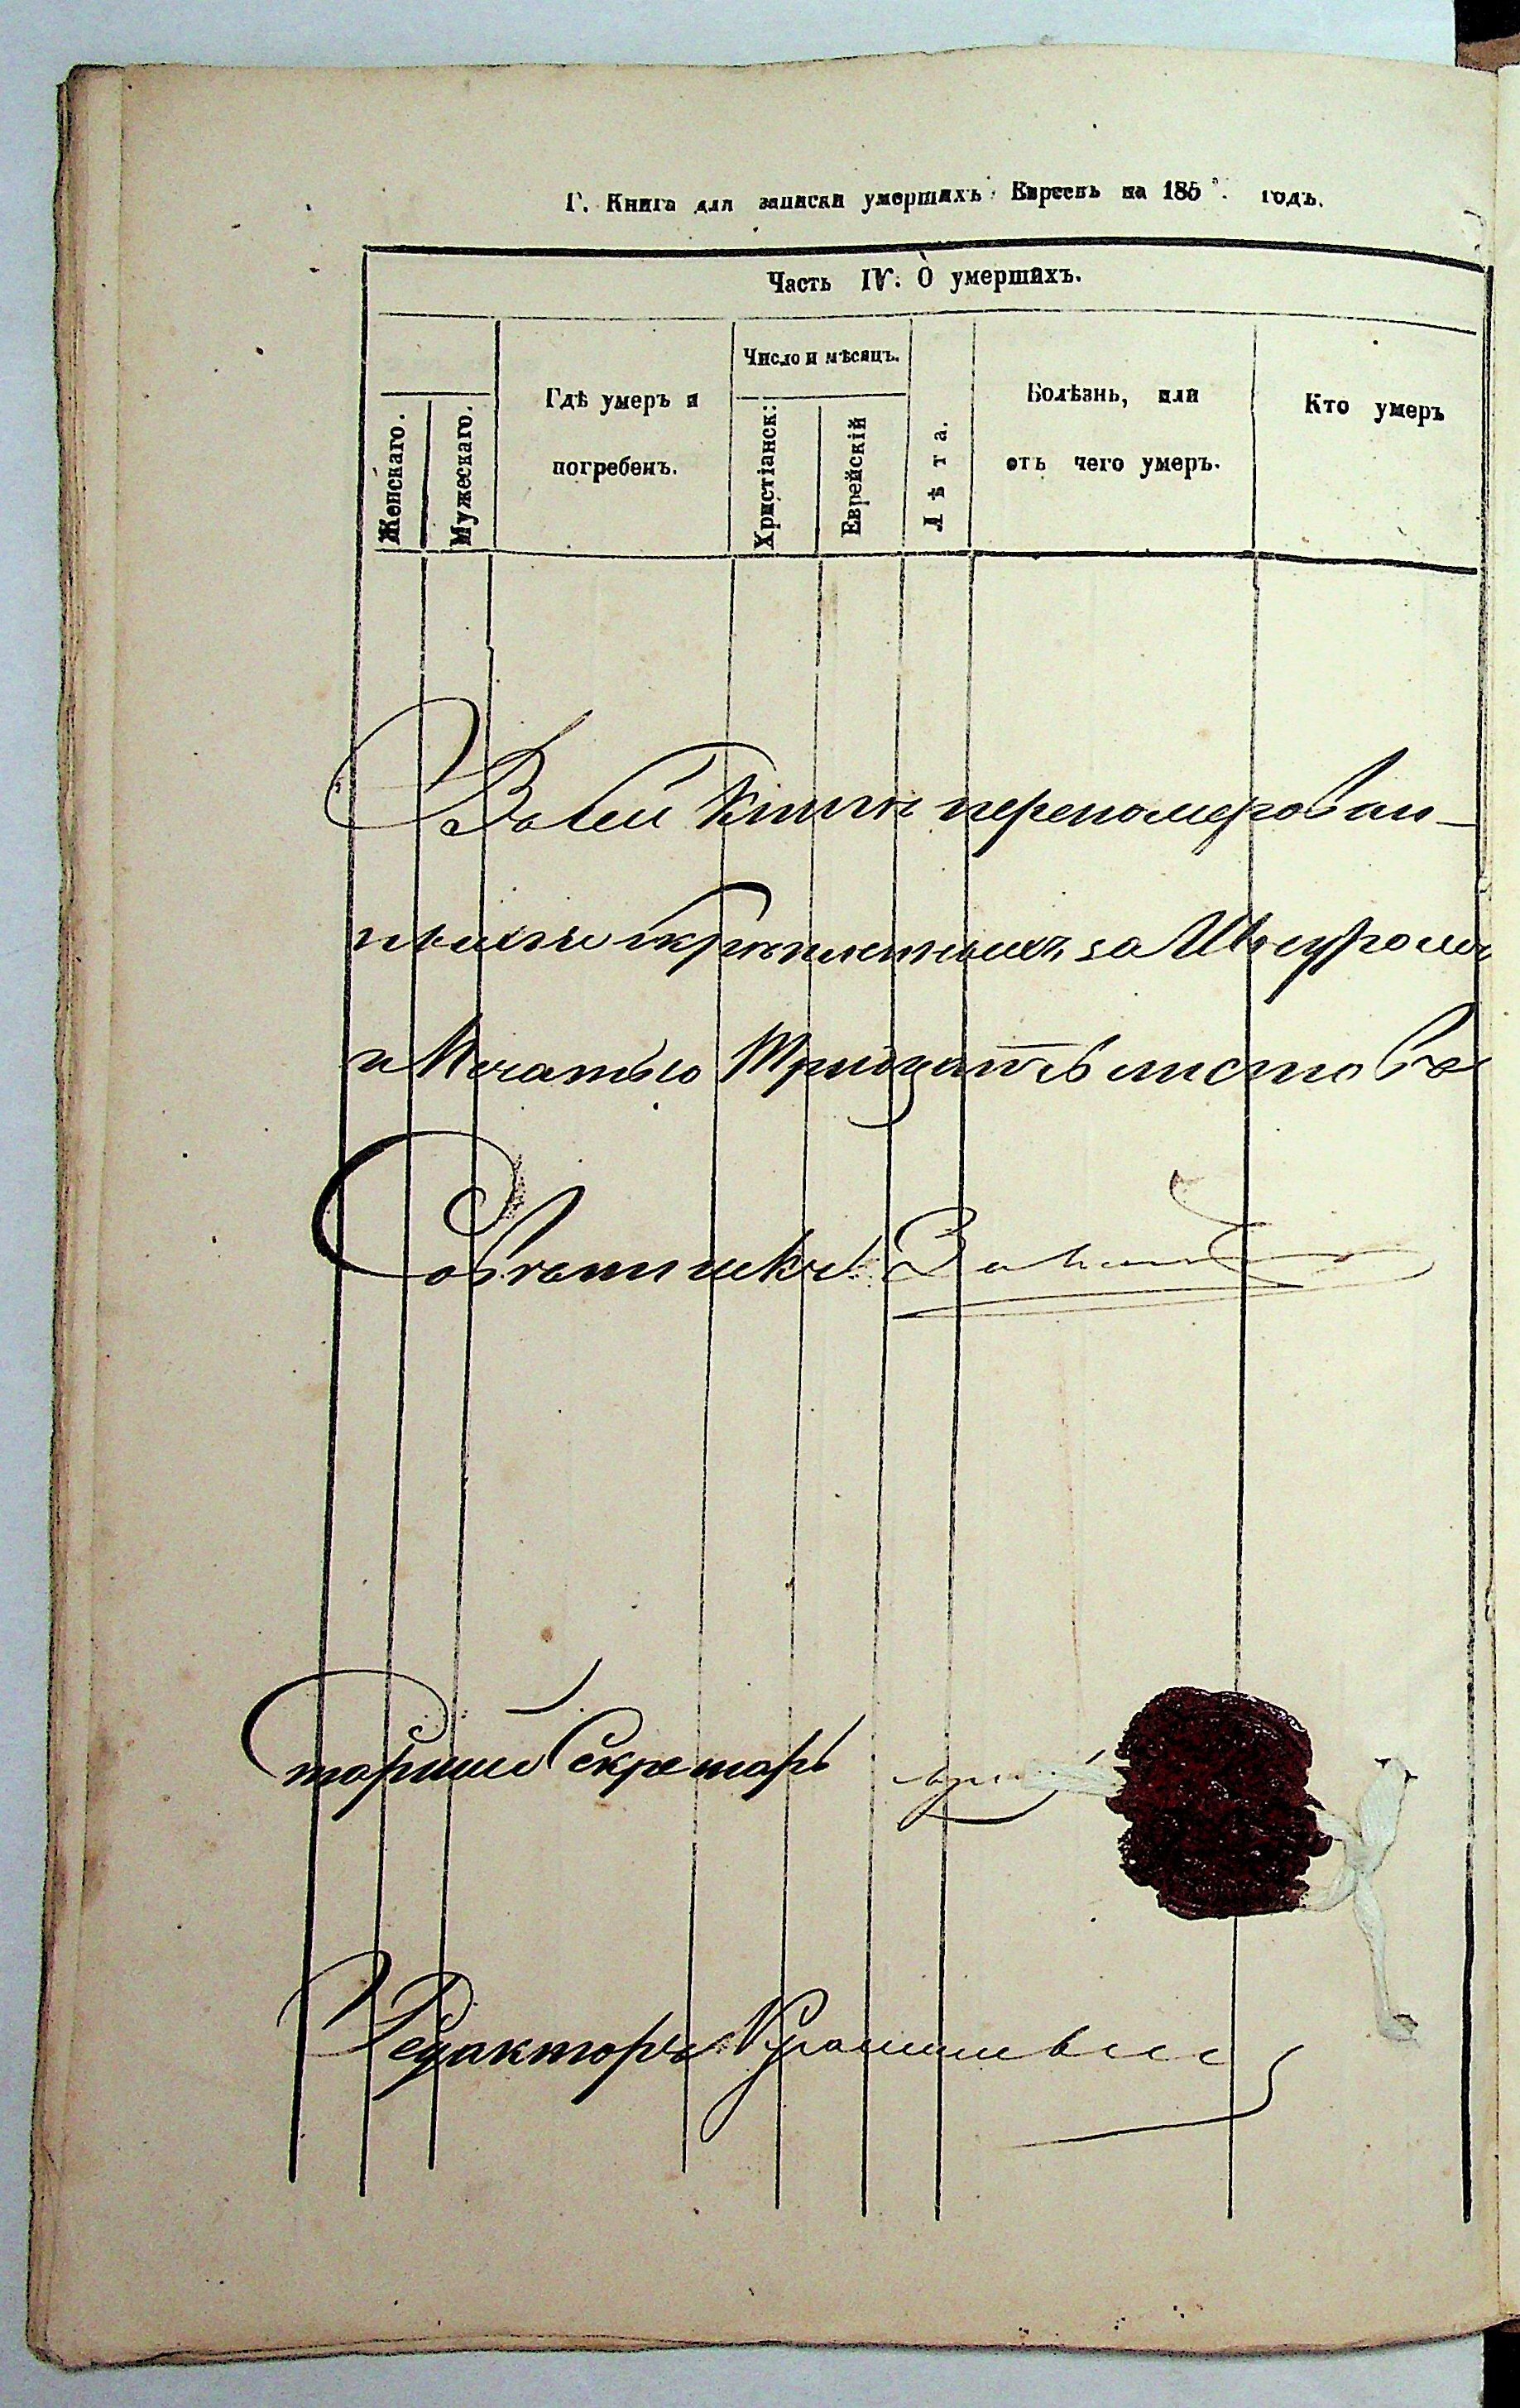 Г. Книга для записки умершихъ Евреевъ на 185 . годъ.
Часть IV. О умершихъ.
Женскаго.
Мужескаго.
Гдѣ умеръ и
погребенъ.
Число и мѣсяцъ.
Христіанск:
Еврейскій
Лѣта.
Болѣзнь, или
отъ чего умеръ.
Кто умеръ
Въ сей Книгѣ перономерован-
ныхъ и скрѣпленныхъ за Шнуромъ
и Печатью Тридцать листовъ
Совѣтникъ
Старшій Секретарь
Редакторъ